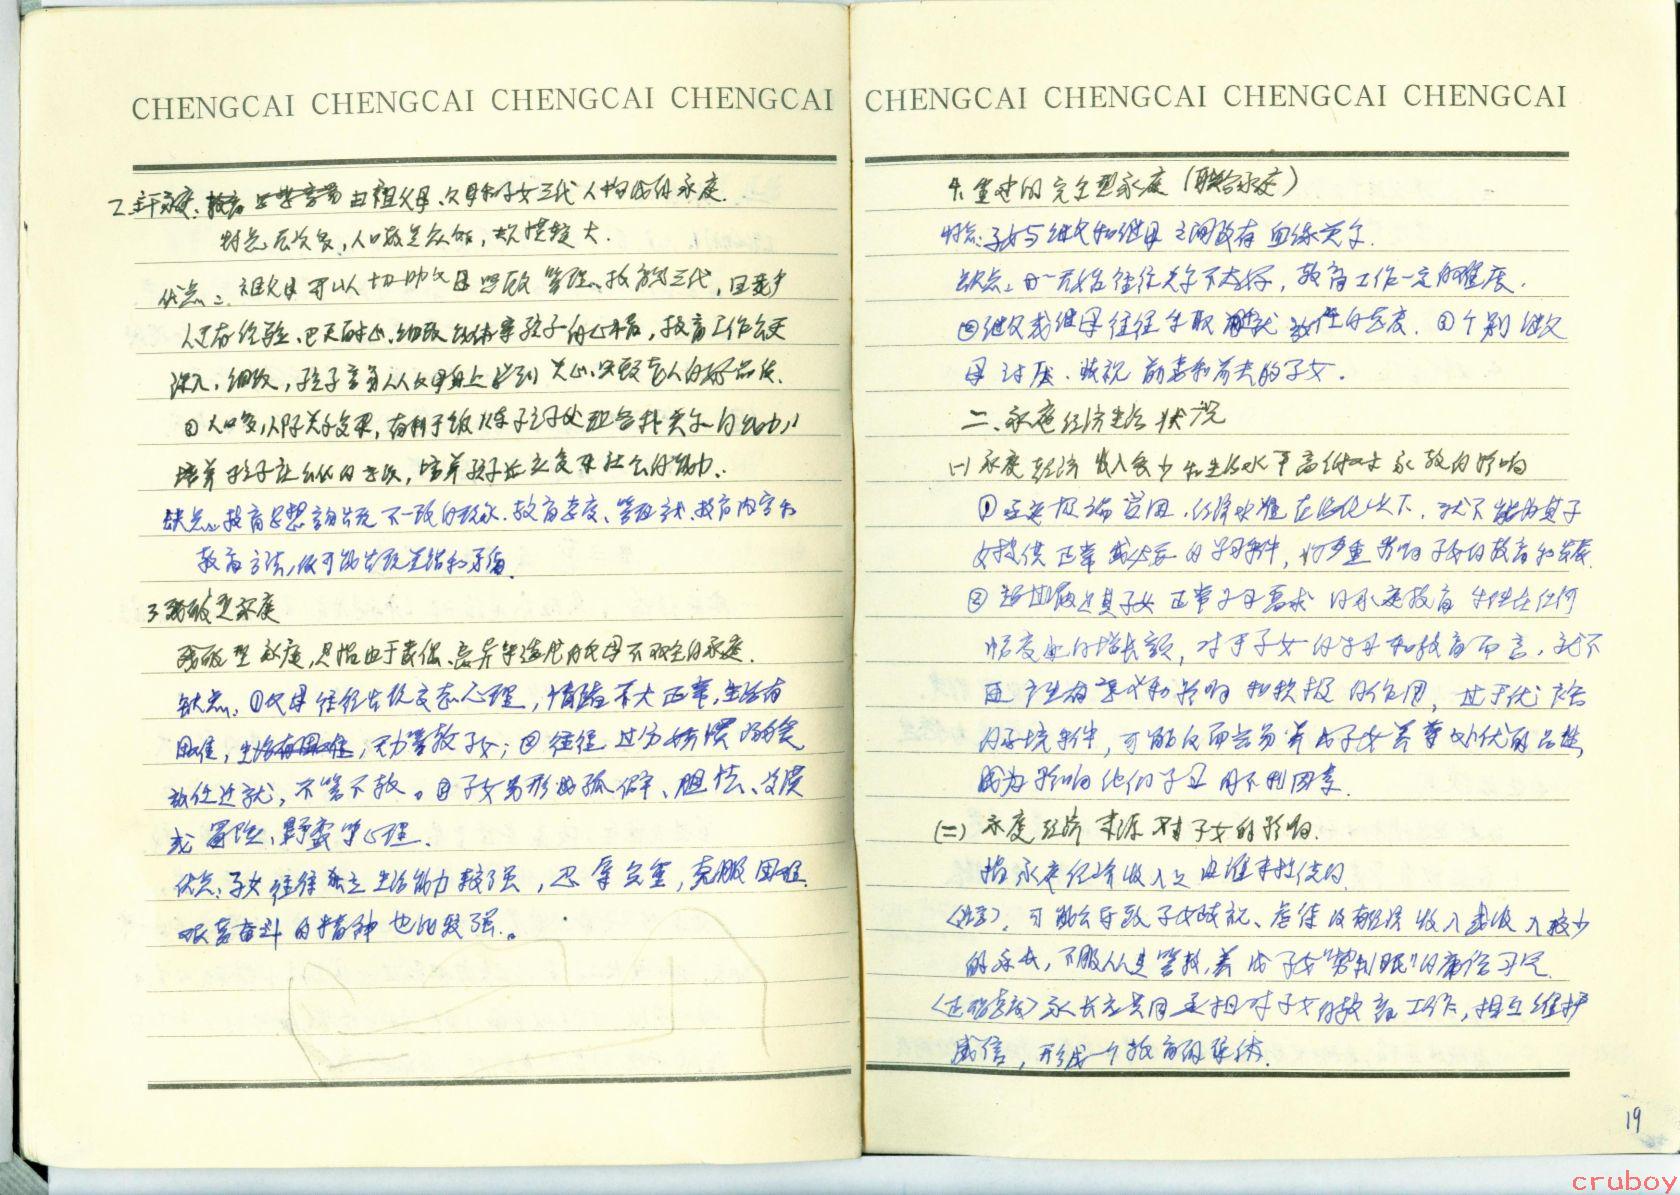 CHENGCAI CHENGCAI CHENGCAI CHENGCAI
2.主干家庭: 由祖父母、父母和子女三代人构成的家庭.
特点层次多,人口较众多,规模较大.
优点: 祖父母可以协助父母照顾管理、教育第三代,且老
人还有经验、又有耐心、细致 孩子的心,教育工作会更
深入、细致,孩子容易从父母身上学到关心、照顾老人的好品质.
②人口多,人际关系复杂,有利于锻炼孩子处理各种关系的能力,
培养孩子 ,培养孩子适应复杂社会的能力.
缺点:教育思想容易出现不一致的现象.教育态度、管理方式、教育内容和
教育方法,很可能出现差错和矛盾.
3.残破型家庭
残破型家庭,是指由于丧偶、离异等造成的父母不双全的家庭.
缺点:①父母往往出现变态心理,情绪不大正常,生活有
困难, 无力管教子女;②往往过分娇惯溺爱
放任迁就,不管不教。③子女易形成孤僻、胆怯、冷漠
或冒险、野蛮等心理.
优点:子女往往独立生活能力较强,忍辱负重,克服困难
艰苦奋斗的精神也比较强。
CHENGCAI CHENGCAI CHENGCAI CHENGCAI
4.重建的完全型家庭(联合家庭)
特点:子女与继父和继母之间没有血缘关系.
缺点:①一开始往往关系不太好,教育工作一定的难度.
②继父或继母往往采取迁就 的态度.③个别继父
母讨厌、歧视前妻和前夫的子女.
二、家庭经济生活状况
(一)家庭经济收入多少和生活水平高低对家教的影响
① 极端贫困,经济水准在 以下,就不能为其子
女提供正常或必要的学习条件,将严重影响子女的教育和发展.
②超过满足其子女正常学习需求的家庭教育 在任何
幅度上的增长额,对于子女的学习和教育而言,就不
再产生有意义和影响和积极的作用,过于优
的环境条件,可能反而容易养成子女养尊处优的品性,
成为影响他们学习的不利因素.
(二)家庭经济来源对子女的影响.
指家庭经济收入是由谁来提供的.
可能会导致子女歧视、虐待没有经济收入或收入较少
的家长,不服从其管教,养成子女"势利眼"的庸俗习气.
家长应共同承担对子女的教育工作,相互维护
威信,形成一个教育的集体.
19
cruboy